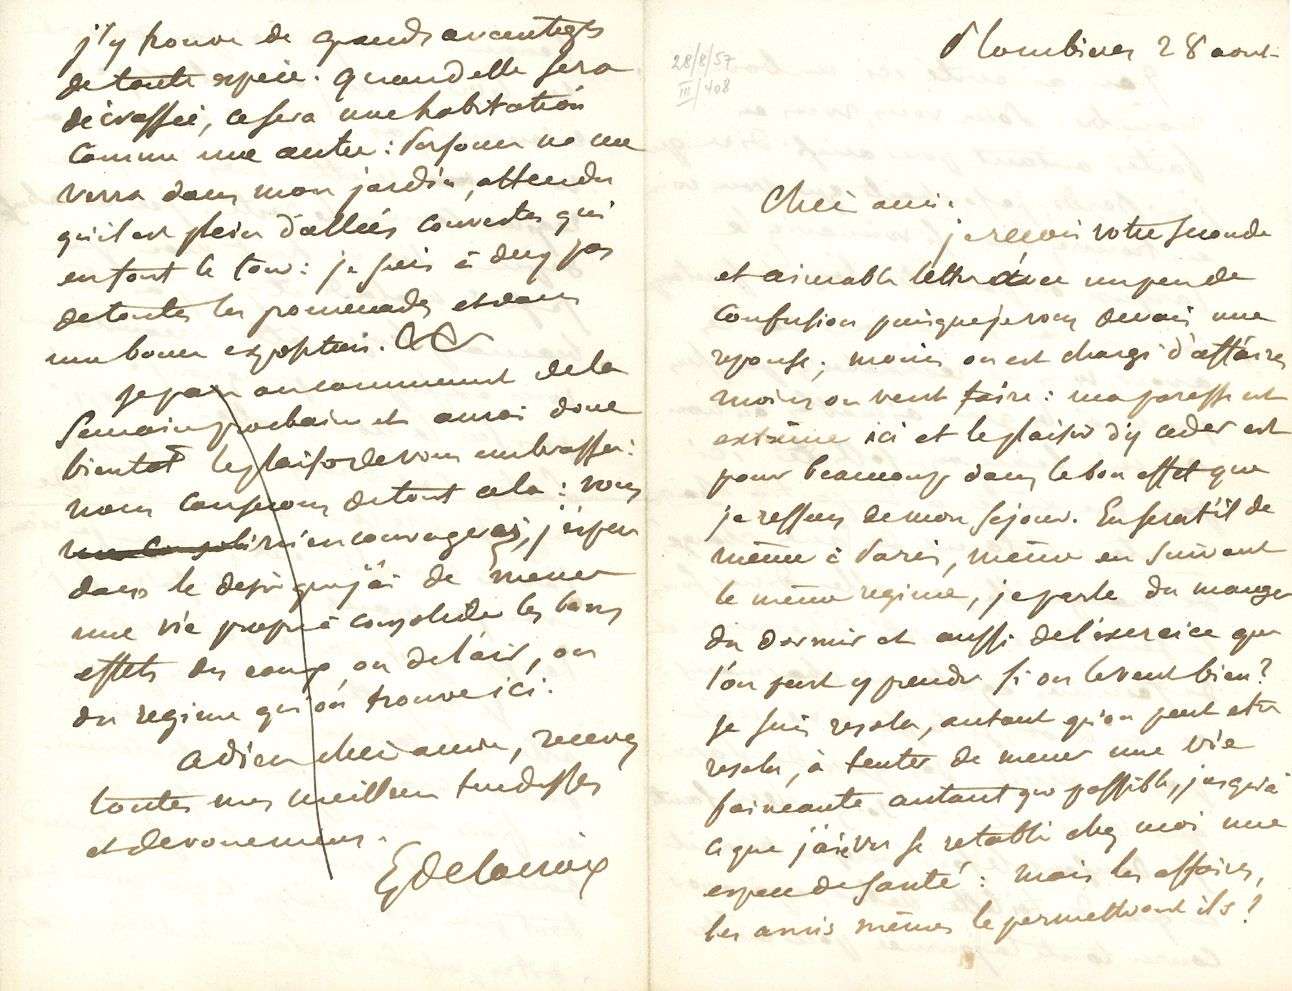 28/8/57
III/408
Plombières 28 aout.
Cher ami.
je reçois votre seconde
et aimable lettre avec un peu de
confusion puisque je vous devais une
reponse ; moins on est chargé d'affaires
moins on veut faire : ma paresse est
extrême ici et le plaisir d'y ceder est
pour beaucoup dans le bon effet que
je ressens de mon sejour. En serat'il de
même à Paris, même en suivant
le même regime, je parle du manger
du dormir et aussi de l'exercice que
l'on peut y prendre si on le veut bien ?
Je suis resolu, autant qu'on peut etre
resolu, à tenter de mener une vie
faineante autant que possible, jusqu'à
ce que j'aie vu se retablir chez moi une
espece de santé : mais les affaires,
les amis mêmes le permettront ils ?
j'y trouve de grands avantages
de toute espèce. quand elle sera
décrassée, ce sera une habitation
comme une autre : Personne ne me
verra dans mon jardin, attendu
qu'il est plein d'allées couvertes qui
en font le tour : je suis à deux pas
de toutes les promenades et dans
une bonne exposition.
Je pars au commencement de la
semaine prochaine et aurai donc
bientot le plaisir de vous embrasser :
nous causerons de tout cela : vous
m'encouragerez, j'espere
dans le desir que j'ai de mener
une vie propre à consolider les bons
effets des eaux, ou de l'air, ou
du regime qu'on trouve ici.
Adieu cher ami, recevez
toutes mes meilleures tendresses
et devouement.
EDelacroix